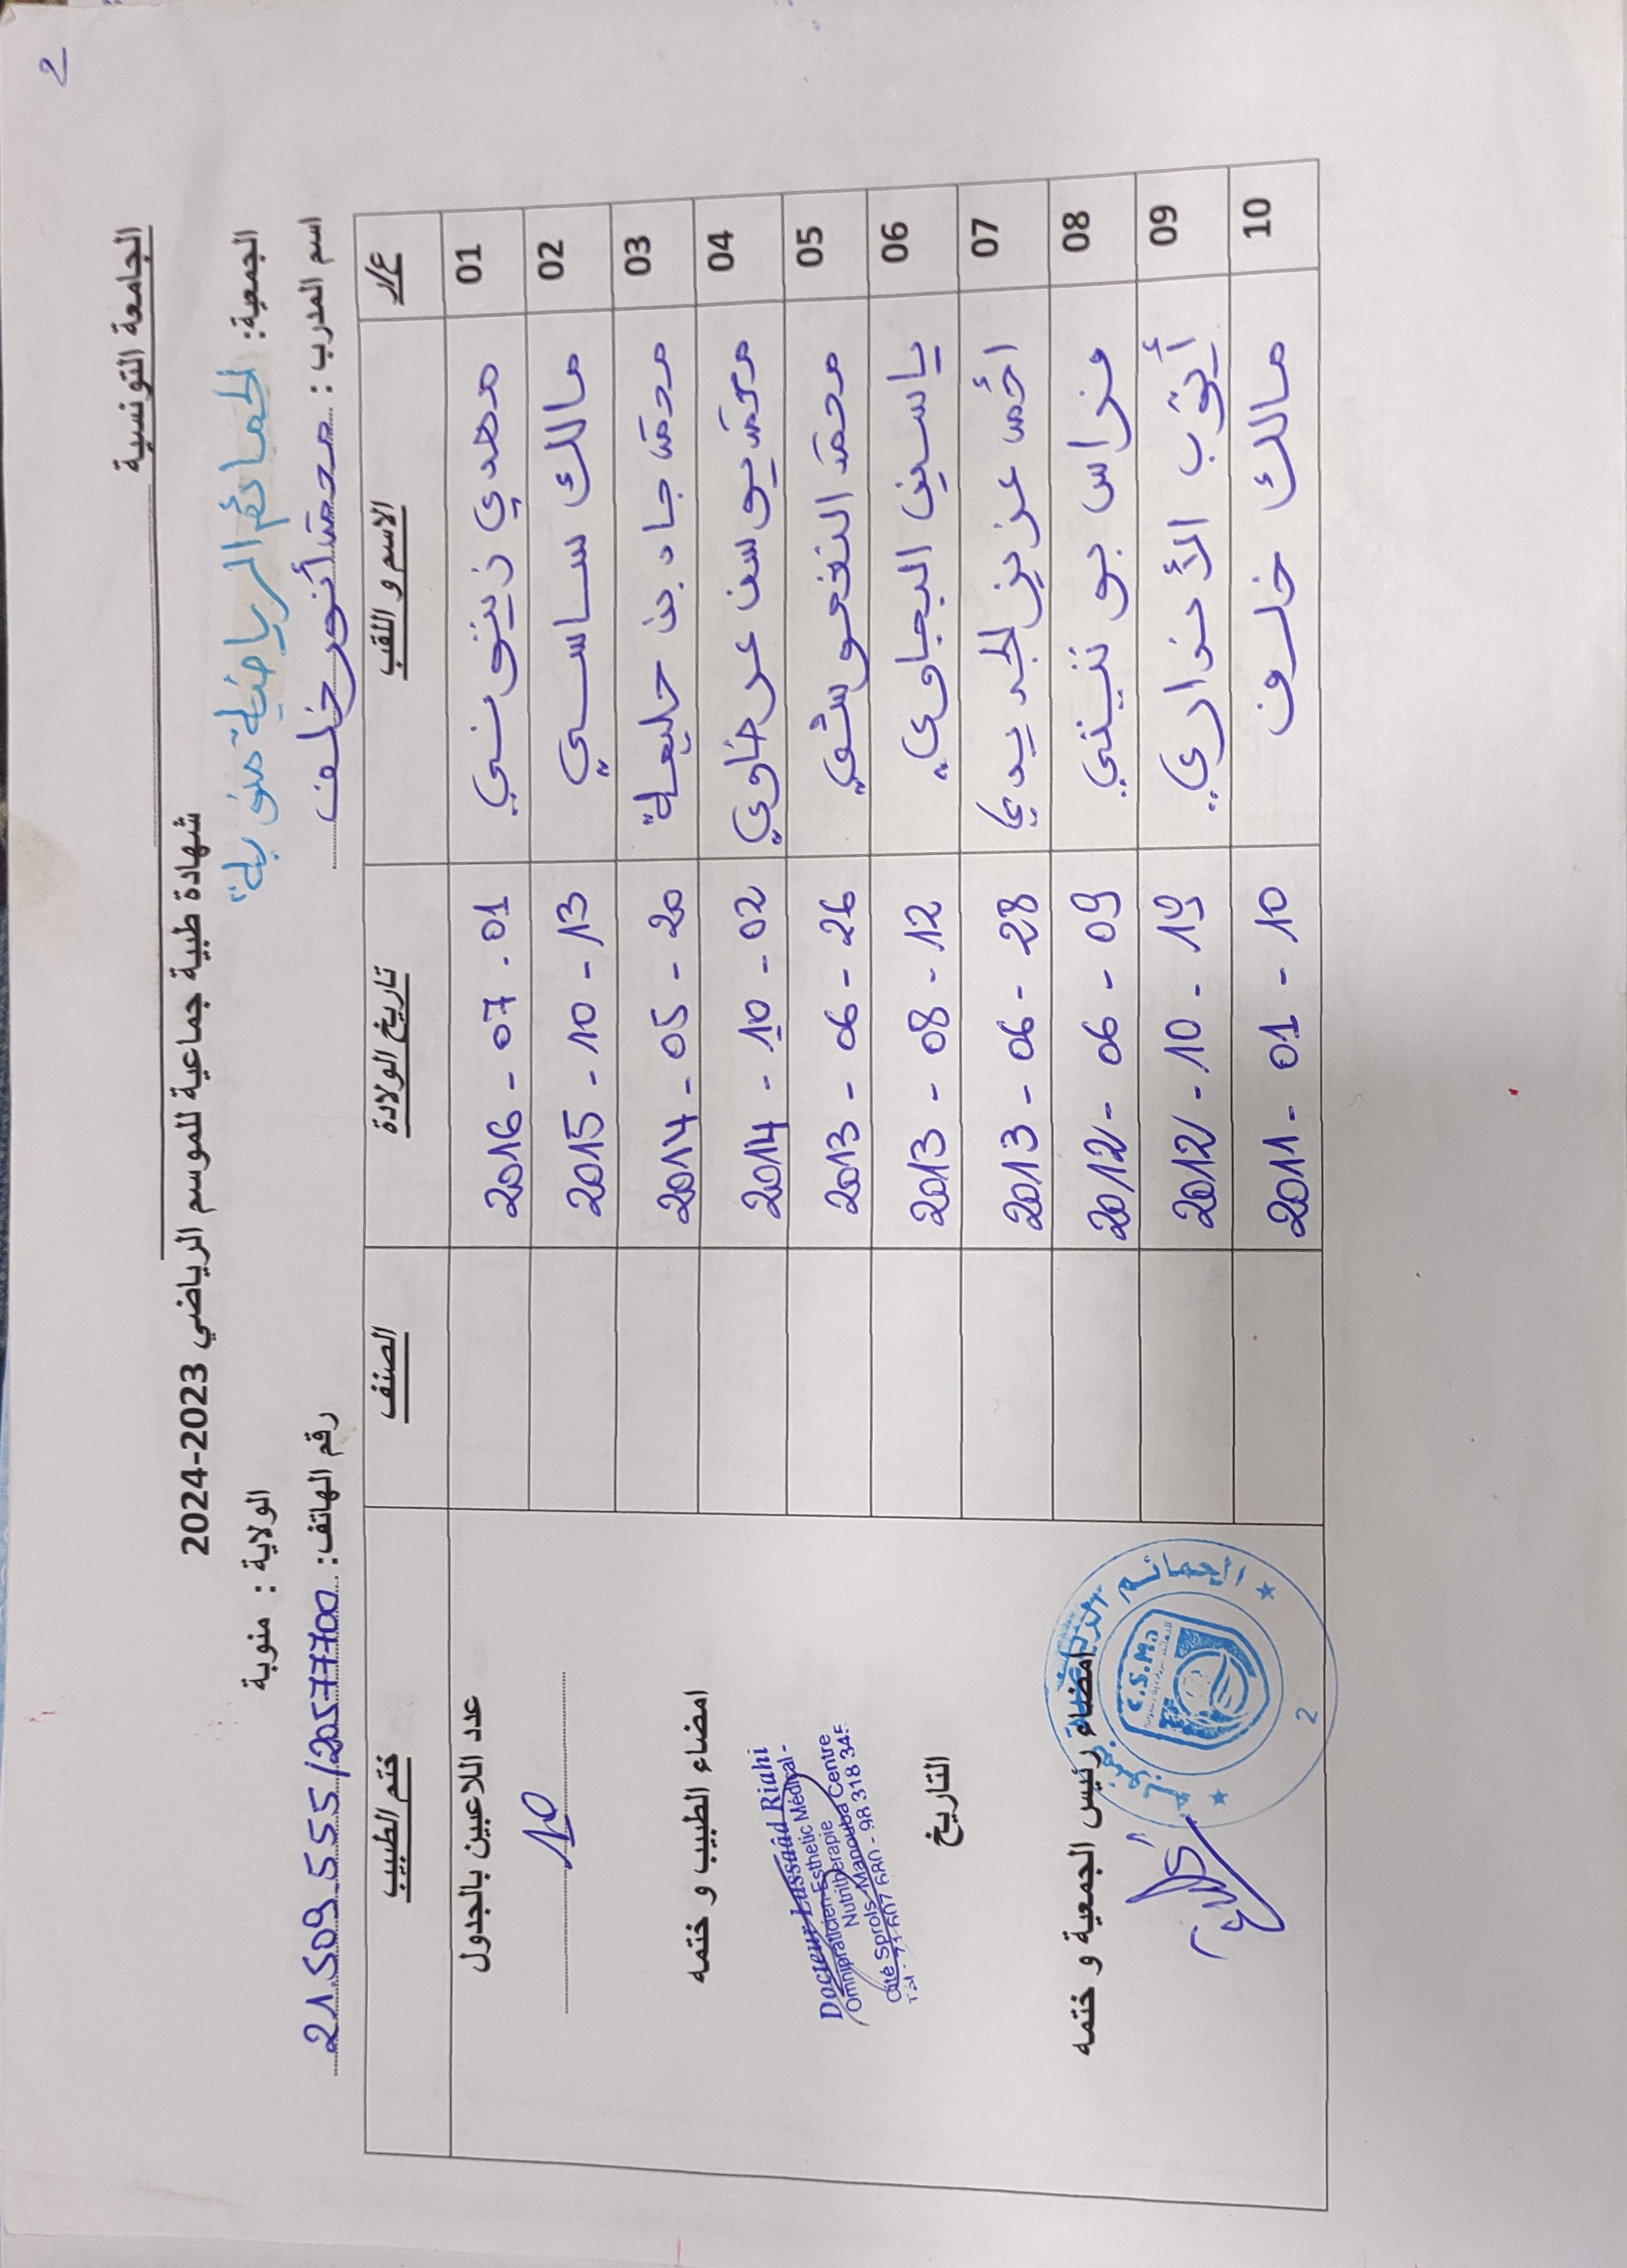 2
الجامعة التونسية
شهادة طبية جماعية للموسم الرياضي 2023-2024
الجمعية: الحمائم الرياضية بمنوبة
الولاية : منوبة
اسم المدرب : محمد أنور خلف
رقم الهاتف: 21.509.555/20577700
ع/ر الاسم و اللقب تاريخ الولادة الصنف ختم الطبيب
01 مهدي زيتوني 2016 - 07 - 01
02 مالك ساسي 2015 - 10 - 13
03 محمد جاد بن حليمة 2014 - 05 - 20
04 محمد يوسف عرضاوي 2014 - 10 - 02
05 محمد 2013 - 06 - 26
06 ياسين البجاوي 2013 - 08 - 12
07 أحمد عزيز الجديدي 2013 - 06 - 28
08 فراس 2012 - 06 - 09
09 أيوب 2012 - 10 - 19
10 مالك خلف 2011 - 01 - 10
عدد اللاعبين بالجدول
10
امضاء الطبيب و ختمه
Docteur Lassaâd Riahi
Omnipraticien-Esthetic Médical -
Nutritherapie
Cité Sprols-Manouba Centre
Tél : 71 607 680 - 98 318 345
التاريخ
امضاء رئيس الجمعية و ختمه
C.S.Ma
2